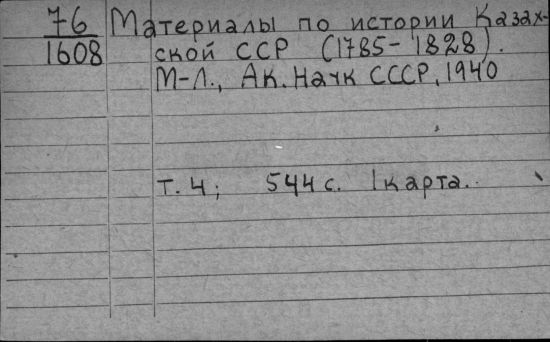 76 Материалы по истории Казах-
1608 ской ССР (1785-1828).
М-Л., Ак. Наук СССР, 1940
т. 4; 544 с. 1 карта.